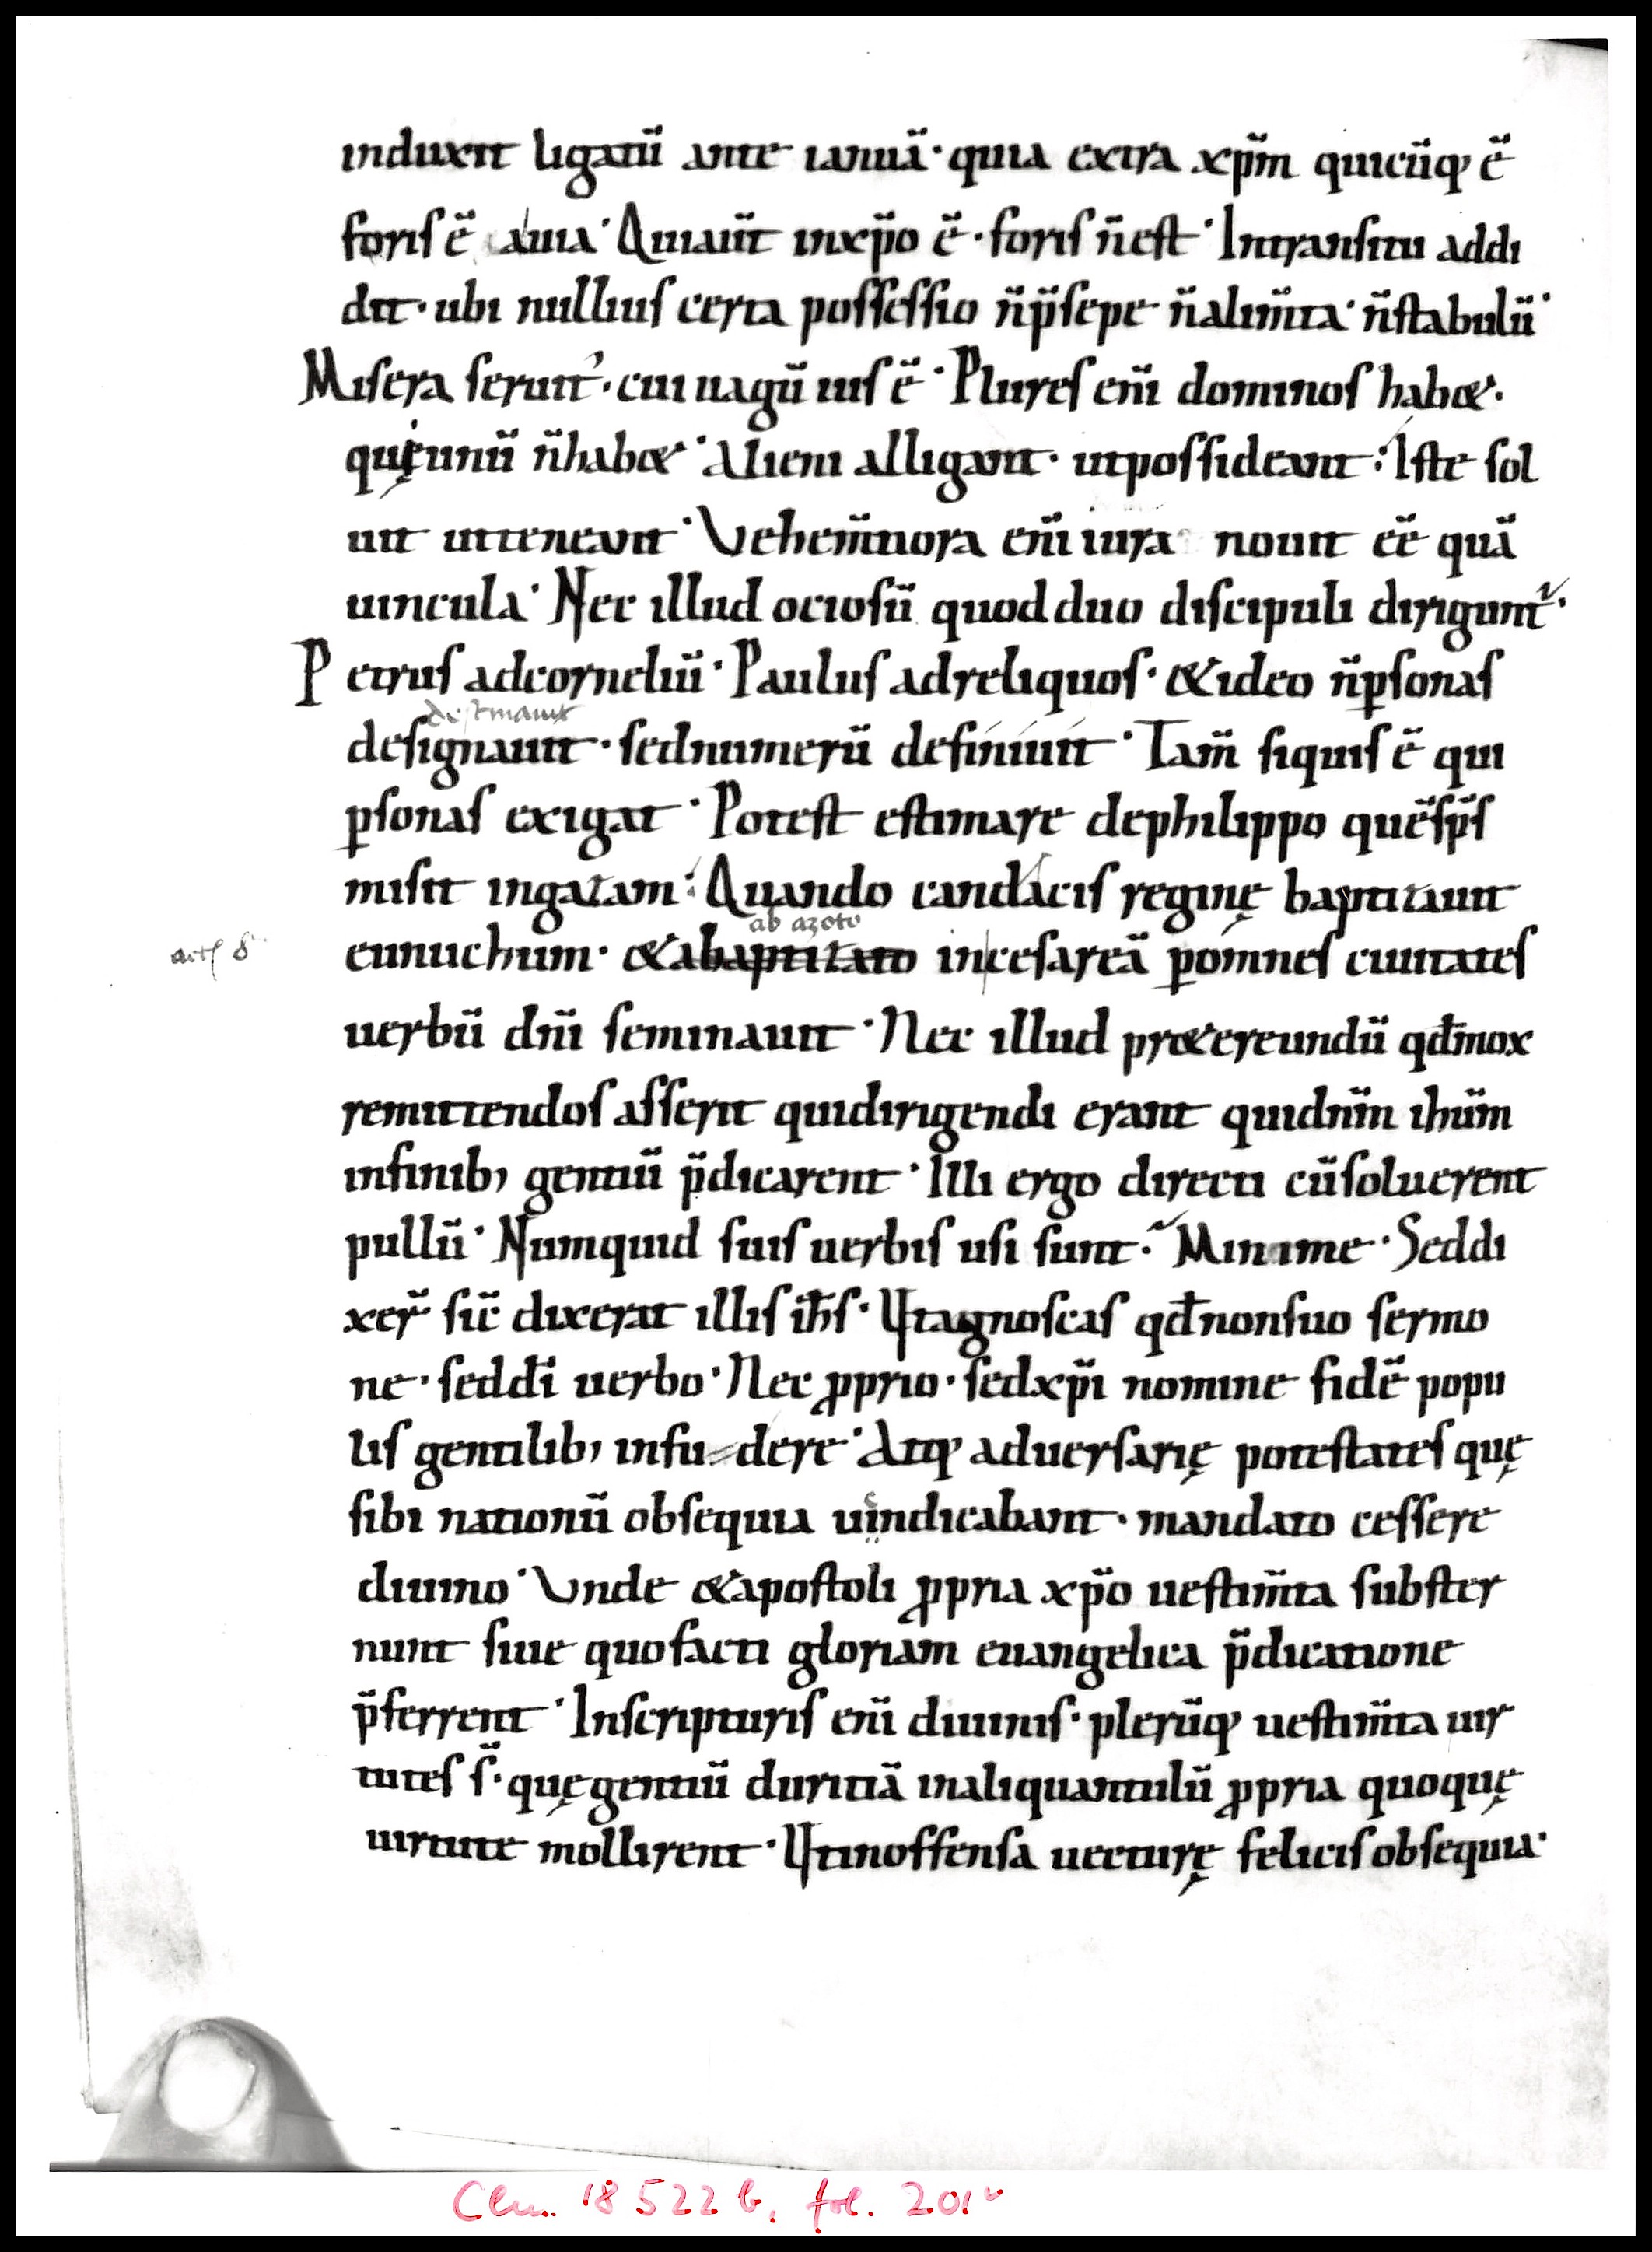 induxit ligatũ ante ianuã · quia extra xp̃m quicũq; ẽ
foris ẽ auia · Quiaũt inxp̃o ẽ · foris ñest · Intransitu addi
dit · ubi nullius certa possessio ñp̃sepe ñalim̃ta · ñstabulũ ·
Misera seruit᾽ · cui uagũ ius ẽ · Plures em̃ dominos hab& ·
quę unũ ñhab& · Alieni alligant · utpossideant : Iste sol
uit utteneant · Vehem̃tiora em̃ iura nouit eẽ quã
uincula · Nec illud ociosũ quod duo discipuli dirigunt᾽ ·
Petrus adcorneliũ · Paulus adreliquos · &ideo ñp̱sonas
destinauit
designauit · sednumerũ definiuit · Tam̃ siquis ẽ qui
p̱sonas exigat · Potest estimare dephilippo quẽ sp̃s
misit ingazam : Quando candacis reginę baptizauit
ab azoto
act⁊ 8 eunuchum · &abaptizato incesareã p̱omnes ciuitates
uerbũ dñi seminauit · Nec illud pr&ereundũ qđmox
remittendos asserit quidirigendi erant quidñm ihũm
infinib; gentiũ p̃dicarent · Illi ergo directi cũsoluerent
pullũ · Numquid suis uerbis usi sunt ·~ Minime · Seddi
xer̃ sic̃ dixerat illis ih̃s · Utagnoscas qđnonsuo sermo
ne · seddĩ uerbo · Nec ꝓprio · sedxp̃i nomine fidẽ popu
lis gentilib; infudere · Atq; aduersarię potestates quę
sibi nationũ obsequia uindicabant · mandato cessere
diuino · Unde &apostoli ꝓpria xp̃o uestim̃ta subster
nunt siue quofacti gloriam euangelica p̃dicatione
p̃ferrent · Inscripturis em̃ diuinis · plerũq; uestim̃ta uir
tutes s̃ · quę gentiũ duritiã inaliquantulũ ꝓpria quoquę
uirtute mollirent · Utinoffensa uecturę felicis obsequia ·
Clm. 18 522 b, fol. 201v